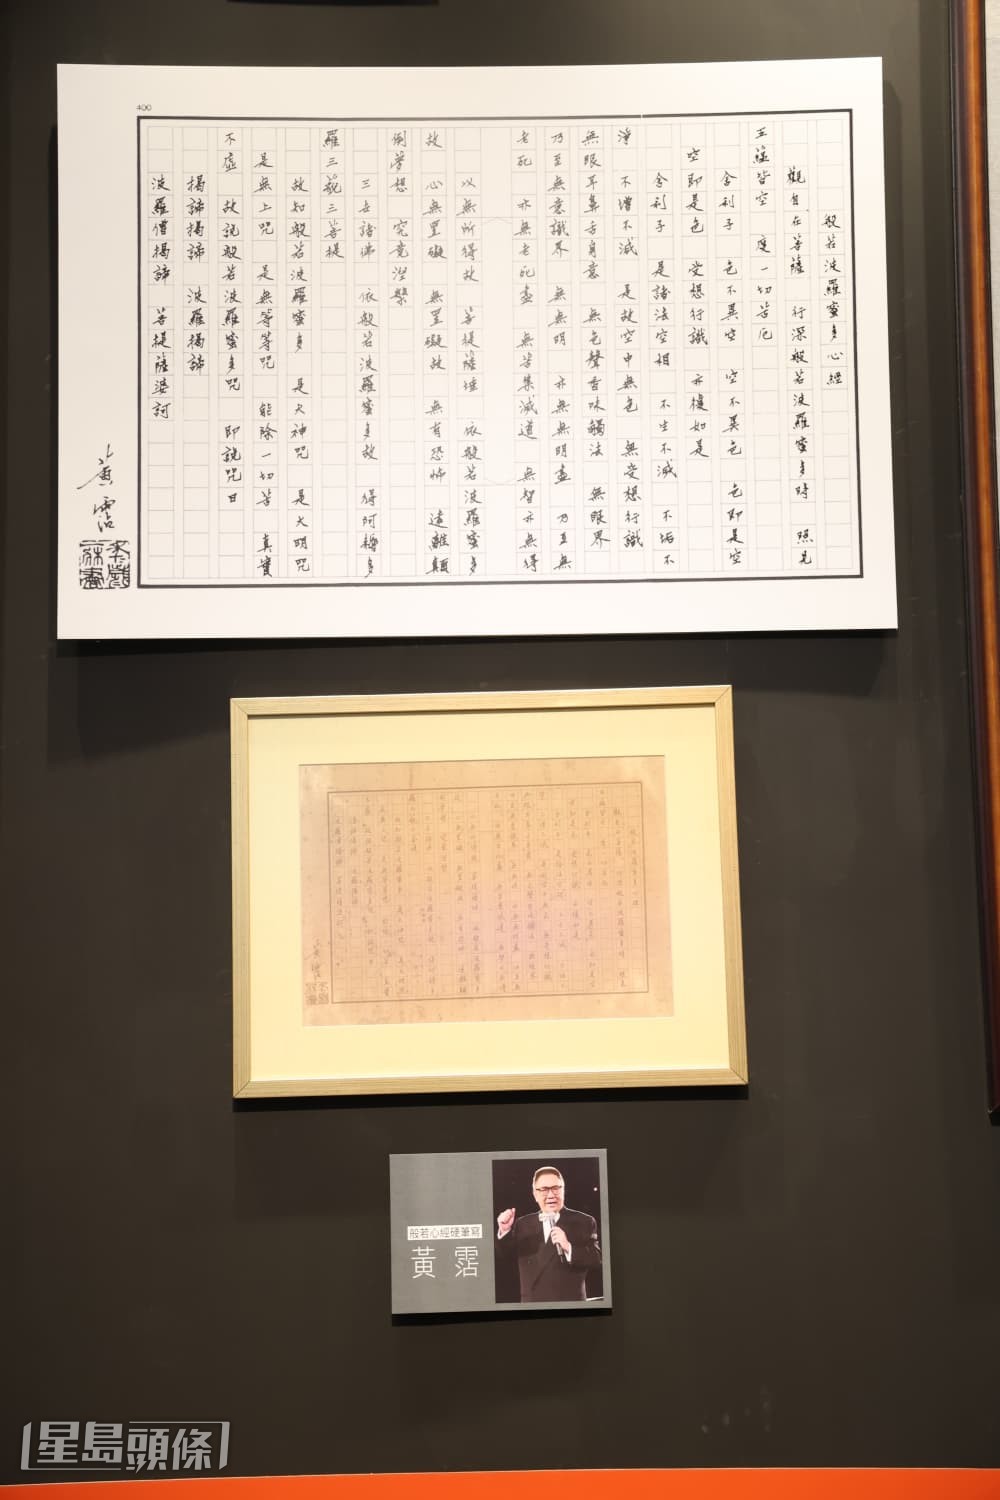 400
般若波羅蜜多心經
觀自在菩薩 行深般若波羅蜜多時 照見
五蘊皆空 度一切苦厄
舍利子 色不異空 空不異色 色即是空
空即是色 受想行識 亦復如是
舍利子 是諸法空相 不生不滅 不垢不
淨 不增不減 是故空中無色 無受想行識
無眼耳鼻舌身意 無色聲香味觸法 無眼界
乃至無意識界 無無明 亦無無明盡 乃至無
老死 亦無老死盡 無苦集滅道 無智亦無得
以無所得故 菩提薩埵 依般若波羅蜜多
故 心無罣礙 無罣礙故 無有恐怖 遠離顛
倒夢想 究竟涅槃
三世諸佛 依般若波羅蜜多故 得阿耨多
羅三藐三菩提
故知般若波羅蜜多 是大神咒 是大明咒
是無上咒 是無等等咒 能除一切苦 真實
不虛 故說般若波羅蜜多咒 即說咒曰
揭諦揭諦 波羅揭諦
波羅僧揭諦 菩提薩婆訶
黃霑
般若心經硬筆寫
黃霑
星島頭條